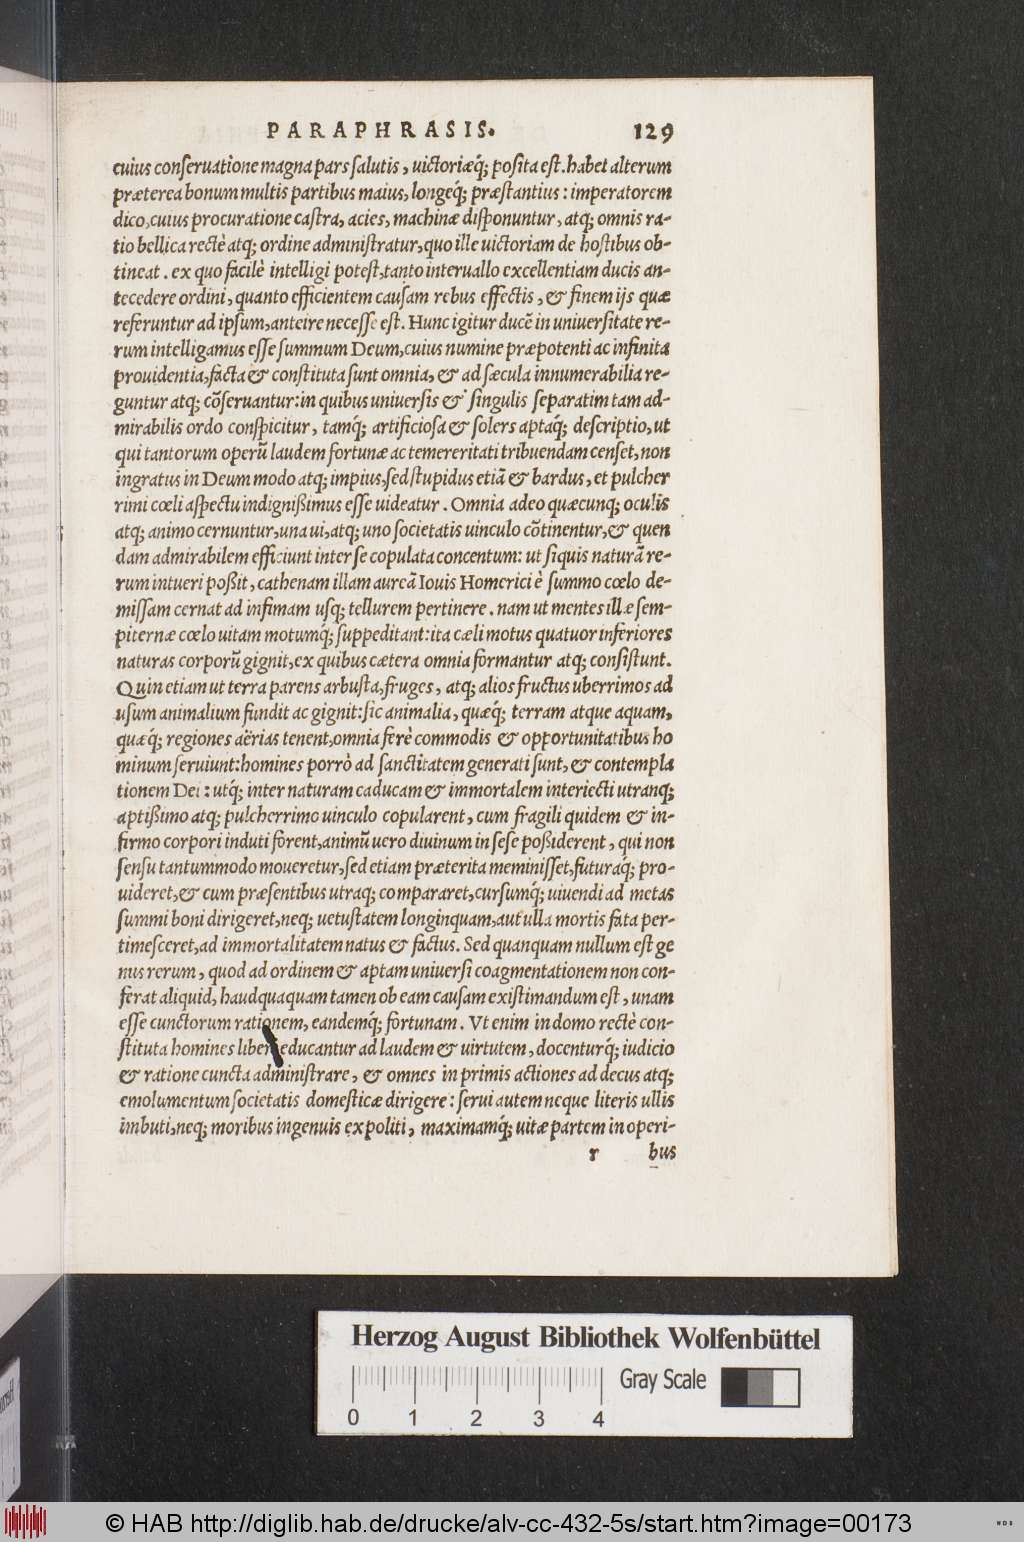 PARAPHRASIS. 129
cuius conseruatione magna pars salutis, uictoriæq́; posita est. habet alterum
præterea bonum multis partibus maius, longeq́; præstantius: imperatorem
dico, cuius procuratione castra, acies, machinæ disponuntur, atq; omnis ra-
tio bellica rectè atq; ordine administratur, quo ille uictoriam de hostibus ob-
tineat. ex quo facilè intelligi potest, tanto interuallo excellentiam ducis an-
tecedere ordini, quanto efficientem causam rebus effectis, & finem ijs quæ
referuntur ad ipsum, anteire necesse est. Hunc igitur ducẽ in uniuersitate re-
rum intelligamus esse summum Deum, cuius numine præpotenti ac infinita
prouidentia, facta & constituta sunt omnia, & ad sæcula innumerabilia re-
guntur atq; cõseruantur: in quibus uniuersis & singulis separatim tam ad-
mirabilis ordo conspicitur, tamq́; artificiosa & solers aptaq́; descriptio, ut
qui tantorum operũ laudem fortunæ ac temereritati tribuendam censet, non
ingratus in Deum modo atq; impius, sed stupidus etiã & bardus, et pulcher
rimi cœli aspectu indignißimus esse uideatur. Omnia adeo quæcunq; oculis
atq; animo cernuntur, una ui, atq; uno societatis uinculo cõtinentur, & quen
dam admirabilem efficiunt inter se copulata concentum: ut siquis naturã re-
rum intueri poßit, cathenam illam aureã Iouis Homerici è summo cœlo de-
missam cernat ad infimam usq; tellurem pertinere. nam ut mentes illæ sem-
piternæ cœlo uitam motumq́; suppeditant: ita cæli motus quatuor inferiores
naturas corporũ gignit, ex quibus cætera omnia formantur atq; consistunt.
Quin etiam ut terra parens arbusta, fruges, atq; alios fructus uberrimos ad
usum animalium fundit ac gignit: sic animalia, quæq́; terram atque aquam,
quæq́; regiones aërias tenent, omnia ferè commodis & opportunitatibus ho
minum seruiunt: homines porrò ad sanctitatem generati sunt, & contempla
tionem Dei: utq́; inter naturam caducam & immortalem interiecti utranq;
aptißimo atq; pulcherrimo uinculo copularent, cum fragili quidem & in-
firmo corpori induti forent, animũ uero diuinum in sese poßiderent, qui non
sensu tantummodo moueretur, sed etiam præterita meminisset, futuraq́; pro-
uideret, & cum præsentibus utraq; compararet, cursumq́; uiuendi ad metas
summi boni dirigeret, neq; uetustatem longinquam, aut ulla mortis fata per-
timesceret, ad immortalitatem natus & factus. Sed quanquam nullum est ge
nus rerum, quod ad ordinem & aptam uniuersi coagmentationem non con-
ferat aliquid, haudquaquam tamen ob eam causam existimandum est, unam
esse cunctorum rationem, eandemq́; fortunam. Vt enim in domo rectè con-
stituta homines liberi educantur ad laudem & uirtutem, docenturq́; iudicio
& ratione cuncta administrare, & omnes in primis actiones ad decus atq;
emolumentum societatis domesticæ dirigere: serui autem neque literis ullis
imbuti, neq; moribus ingenuis expoliti, maximamq́; uitæ partem in operi-
r bus
Herzog August Bibliothek Wolfenbüttel
Gray Scale
0 1 2 3 4
© HAB http://diglib.hab.de/drucke/alv-cc-432-5s/start.htm?image=00173